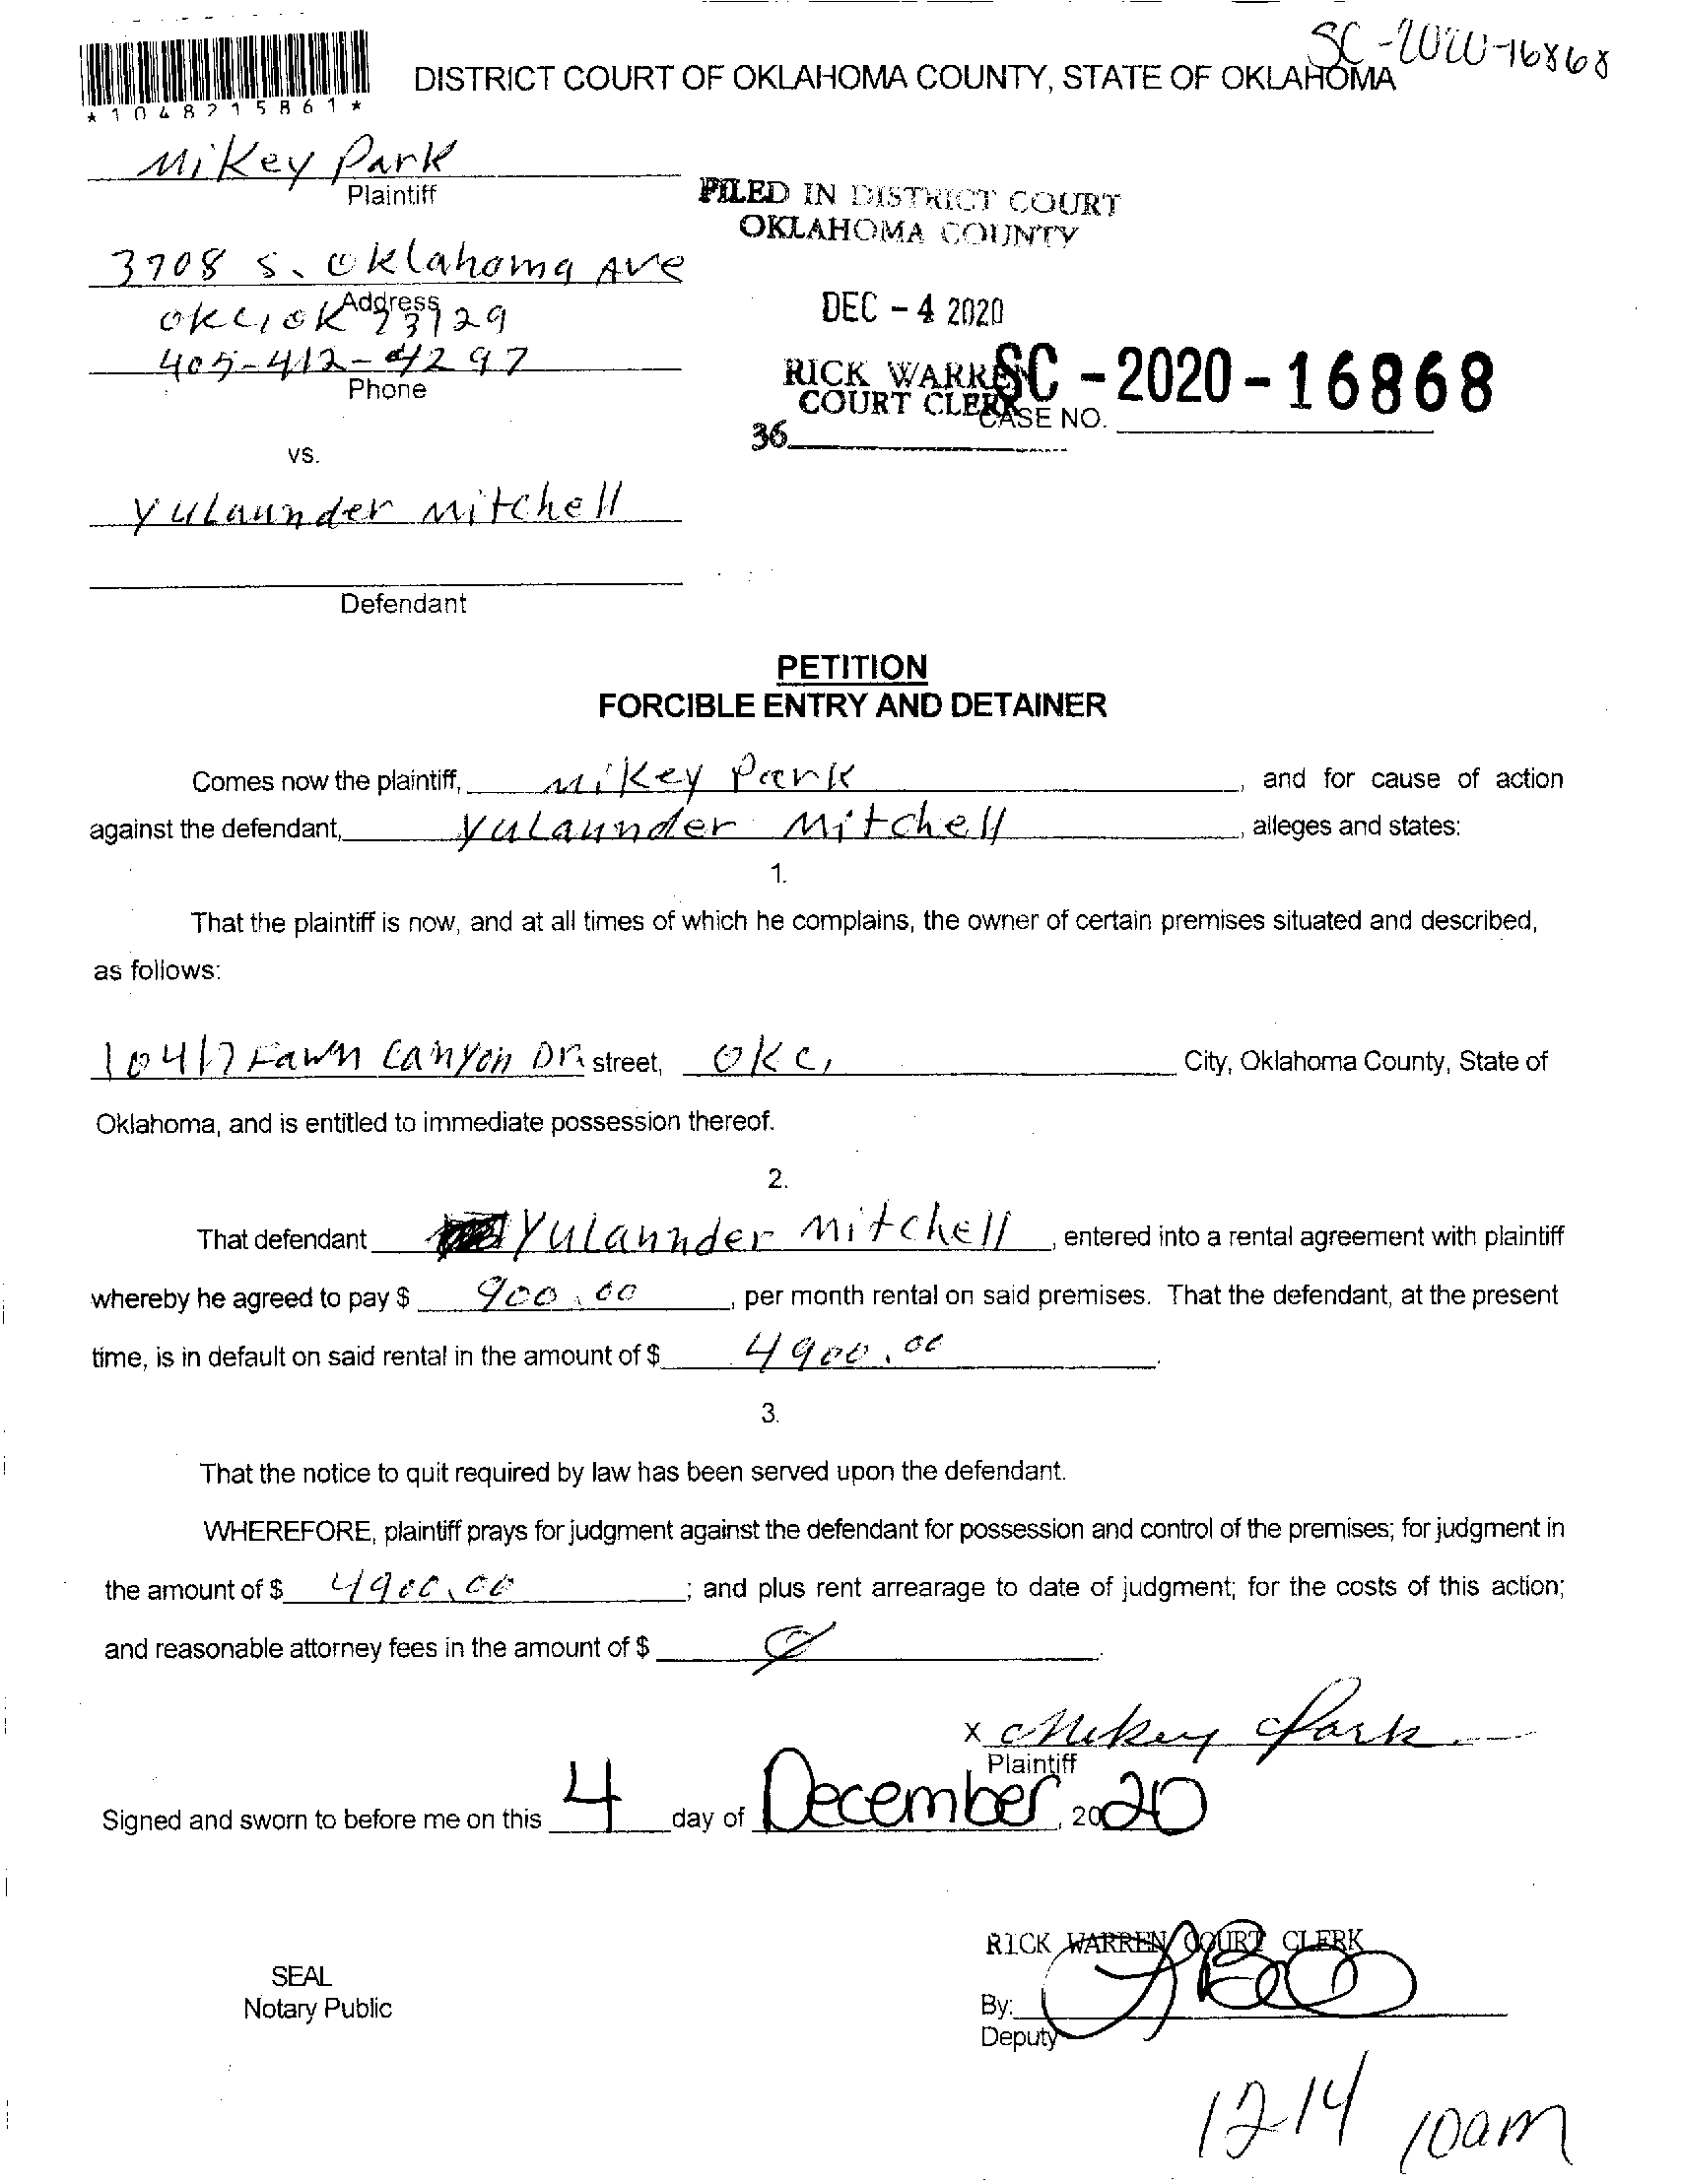 SC-2020-16868
DISTRICT COURT OF OKLAHOMA COUNTY, STATE OF OKLAHOMA
*1048215861*
Mikey Park
Plaintiff
FILED IN DISTRICT COURT
OKLAHOMA COUNTY
3708 S. Oklahoma Ave
Address
OKC, OK 73129
DEC - 4 2020
405-412-4297
Phone
RICK WARREN
COURT CLERK
SC - 2020 - 16868
CASE NO.
36
vs.
Yulaunder Mitchell
Defendant
PETITION
FORCIBLE ENTRY AND DETAINER
Comes now the plaintiff, Mikey Park, and for cause of action
against the defendant, Yulaunder Mitchell, alleges and states:
1.
That the plaintiff is now, and at all times of which he complains, the owner of certain premises situated and described,
as follows:
10417 Fawn Canyon Dr. street, OKC, City, Oklahoma County, State of
Oklahoma, and is entitled to immediate possession thereof.
2.
That defendant Yulaunder Mitchell, entered into a rental agreement with plaintiff
whereby he agreed to pay $ 900.00, per month rental on said premises. That the defendant, at the present
time, is in default on said rental in the amount of $ 4900.00.
3.
That the notice to quit required by law has been served upon the defendant.
WHEREFORE, plaintiff prays for judgment against the defendant for possession and control of the premises; for judgment in
the amount of $ 4900.00; and plus rent arrearage to date of judgment; for the costs of this action;
and reasonable attorney fees in the amount of $ Ø.
x Mikey Park
Plaintiff
Signed and sworn to before me on this 4 day of December, 2020
RICK WARREN COURT CLERK
SEAL
Notary Public
By:
Deputy
12-14 10am